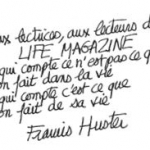 aux lectrices, aux lecteurs d
LIFE MAGAZINE
qui compte ce n'est pas ce qu
on fait dans la vie
qui compte c'est ce que
on fait de sa vie
Francis Huster